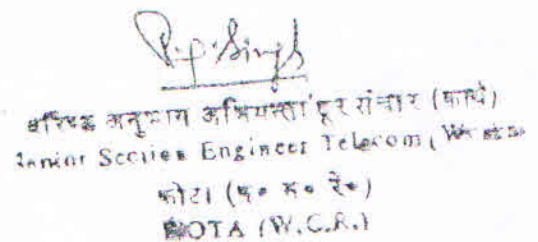 P.P. Singh
वरिष्ठ अनुभाग अभियन्ता दूर संचार (कार्य)
Senior Section Engineer Telecom (Works)
कोटा (प० म० रे०)
KOTA (W.C.R.)